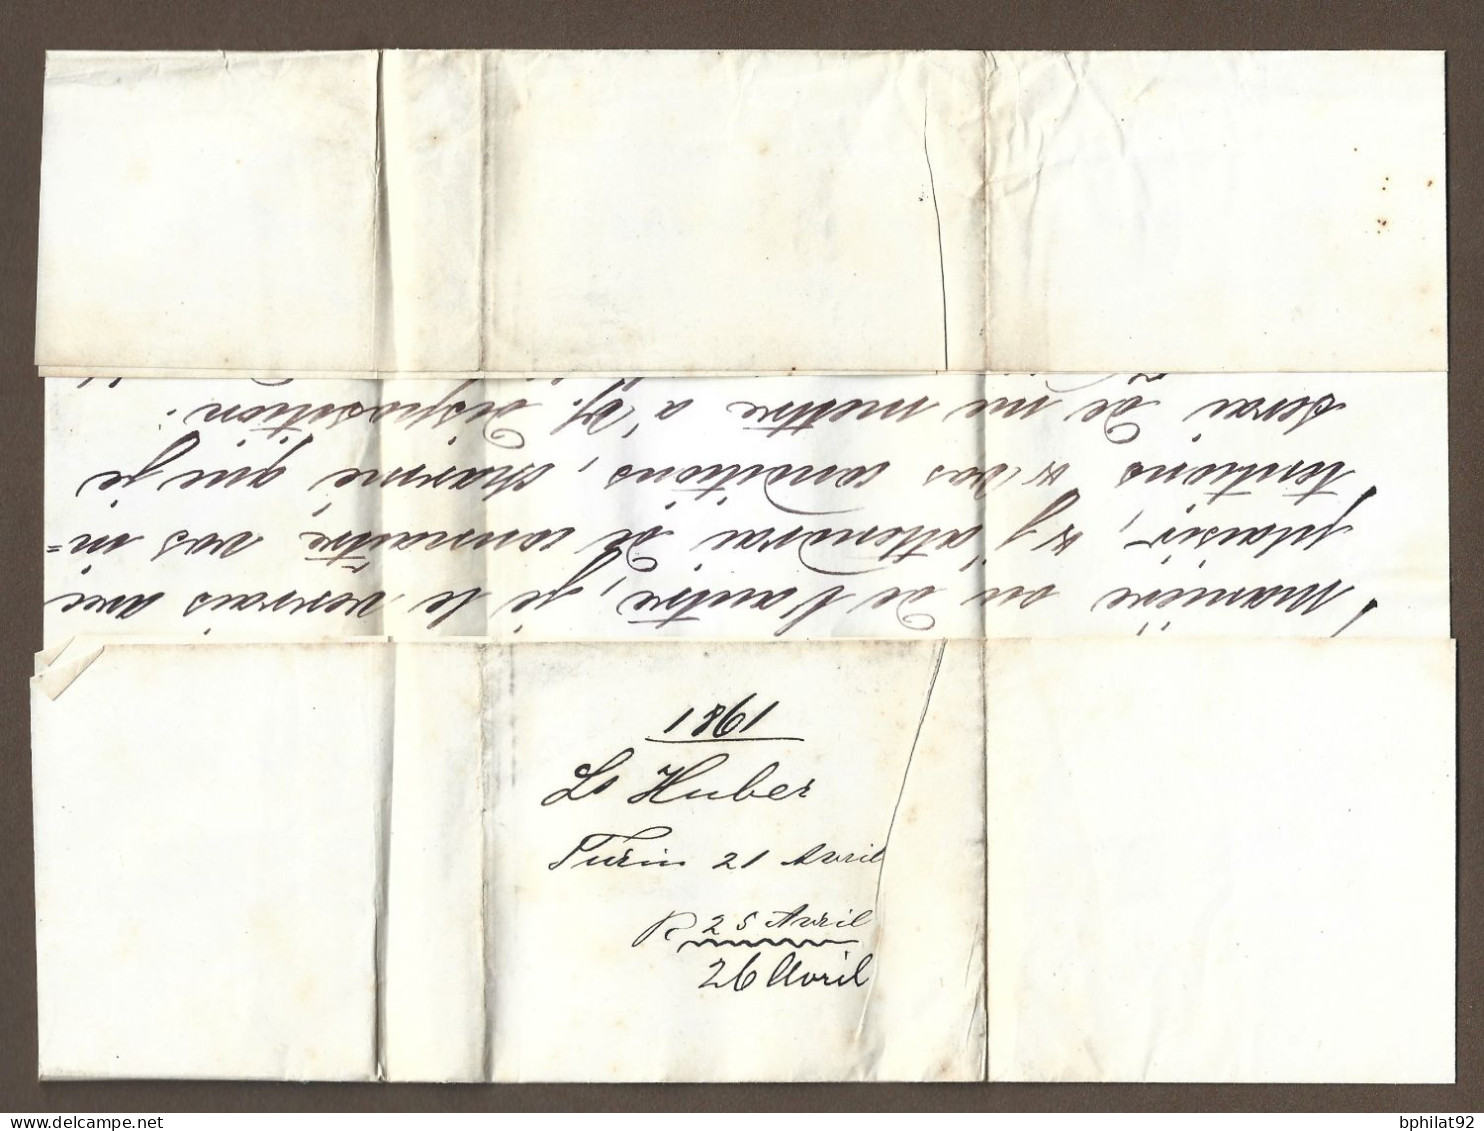 manière ou de l'autre, je le verrais avec
plaisir, & j'attendrai de connaître vos in=
tentions & vos conditions, charmé que je
serai de me mettre à V/. disposition.
1861
Ls Huber
Turin 21 Avril
R 25 Avril
26 Avril
bphilat92